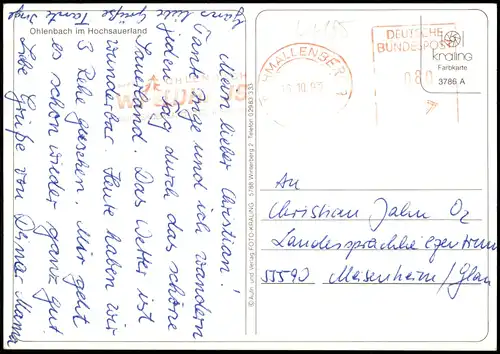 Ohlenbach im Hochsauerland
Mein lieber Christian!
Tante Inge und ich wandern
jeden Tag durch das schöne
Sauerland. Das Wetter ist
wunderbar. Heute haben wir
3 Rehe gesehen. Mir geht
es schon wieder ganz gut
Liebe Grüße von Deiner Mama
Ganz liebe Grüße Tante Inge
© Aufn. und Verlag FOTO-KRALING 5788 Winterberg 2 Telefon 02983/333
SCHMALLENBERG 1
10.9
DEUTSCHE
BUNDESPOST
080
kraling
Farbkarte
3786 A
An
Christian Jahn
Landessprachheilzentrum
55590 Meisenheim/Glan